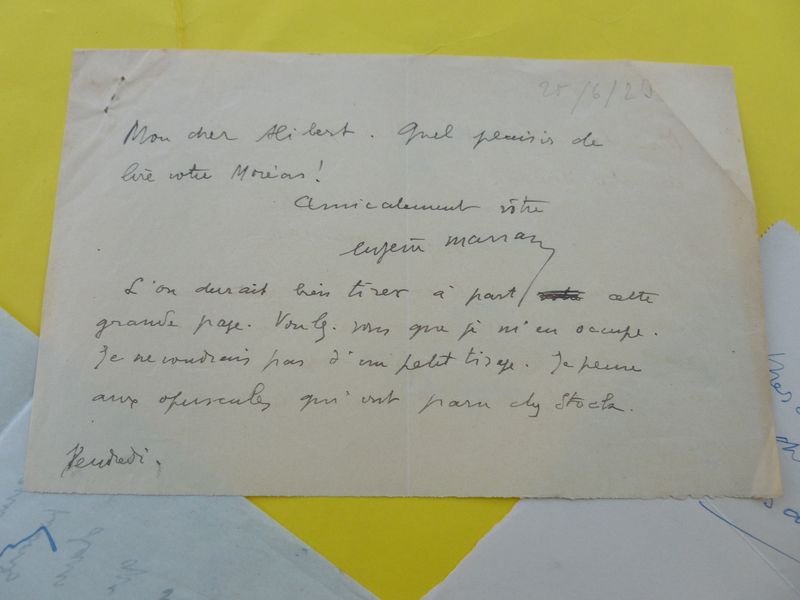 25/6/20
Mon cher Alibert. Quel plaisir de
lire votre Moréas!
Amicalement vôtre
Eugène Marsan
L'on devrait bien tirer à part cette
grande page. Voulez-vous que je m'en occupe.
Je ne voudrais pas d'un petit tirage. Je pense
aux opuscules qui ont paru chez Stock.
Vendredi.